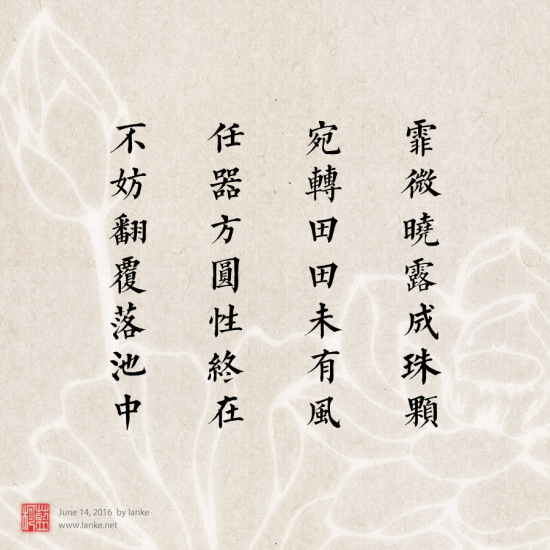 霏微曉露成珠顆
宛轉田田未有風
任器方圓性終在
不妨翻覆落池中
June 14, 2016 by lanke
www.lanke.net